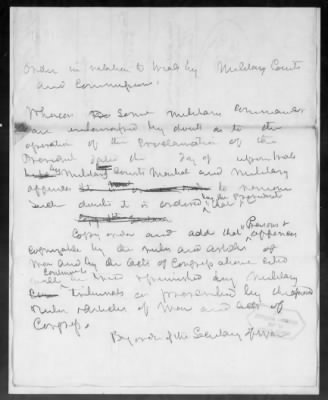 Order in relation to trials by Military Courts
and Commissions.
Whereas Some Military Commanders
are embarrassed by doubts as to the
operation of the Proclamation of the
President dated the day of upon trials
by Military Courts Martial and Military
offences to remove
such doubts it is ordered by the President that
Copy order and add that Persons & offences
cognizable by the rules and articles of
War and by the Acts of Congress above cited
will continue be tried & punished by Military
tribunals as prescribed by
Rules & Articles of War and acts of
Congress.
By order of the Secretary of War